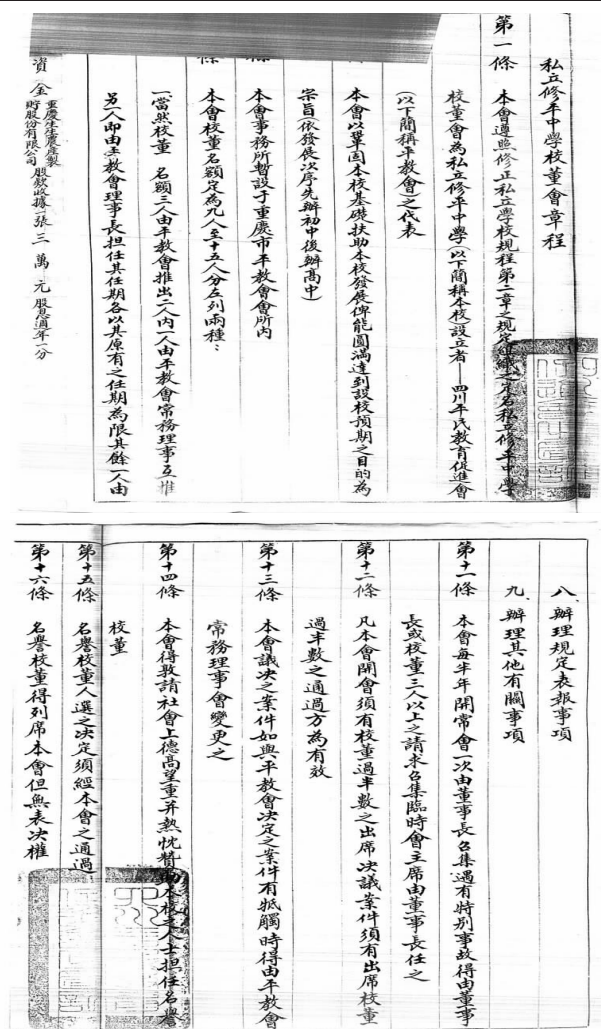 私立修平中學校董會章程
第一條 本會遵照修正私立學校規程第二章之規定組織之定名私立修平中學
校董會為私立修平中學(以下簡稱本校設立者——四川平民教育促進會
(以下簡稱平教會之代表
本會以鞏固本校基礎扶助本校發展俾能圓滿達到設校預期之目的為
宗旨依發展次序先辦初中後辦高中)
條 本會事務所暫設于重慶市平教會會所內
條 本會校董名額定為九人至十五人分左列兩種:
一當然校董 名額三人由平教會推出二人內一人由平教會常務理事互推
另一人即由平教會理事長担任其任期各以其原有之任期為限其餘一人由
資金 重慶生生農產製
貯股份有限公司 股款收據一張三萬元股息週年一分
八、辦理規定表報事項
九、辦理其他有關事項
第十一條 本會每半年開常會一次由董事長召集遇有特別事故得由董事
長或校董三人以上之請求召集臨時會主席由董事長任之
第十二條 凡本會開會須有校董過半數之出席決議案件須有出席校董
過半數之通過方為有效
第十三條 本會議決之案件如與平教會決定之案件有抵觸時得由平教會
常務理事會變更之
第十四條 本會得敦請社會上德高望重并熱忱贊助本校之人士担任名譽
校董
第十五條 名譽校董人選之決定須經本會之通過
第十六條 名譽校董得列席本會但無表决權